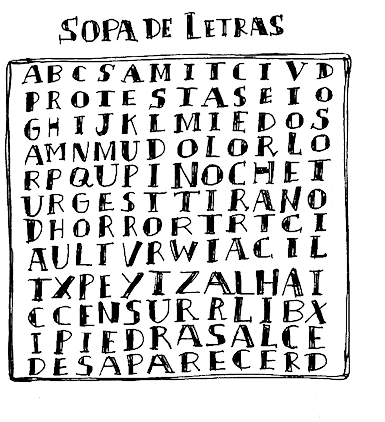 SOPA DE LETRAS
A B C S A M I T C I V D
P R O T E S T A S E I O
G H I J K L M I E D O S
A M N M U D O L O R L O
R P Q U P I N O C H E T
U R G E S T T I R A N O
D H O R R O R T R T C I
A U L T V R W I A C I L
T X P E Y I Z A L H A I
C C E N S U R R L I B X
I P I E D R A S A L C E
D E S A P A R E C E R D